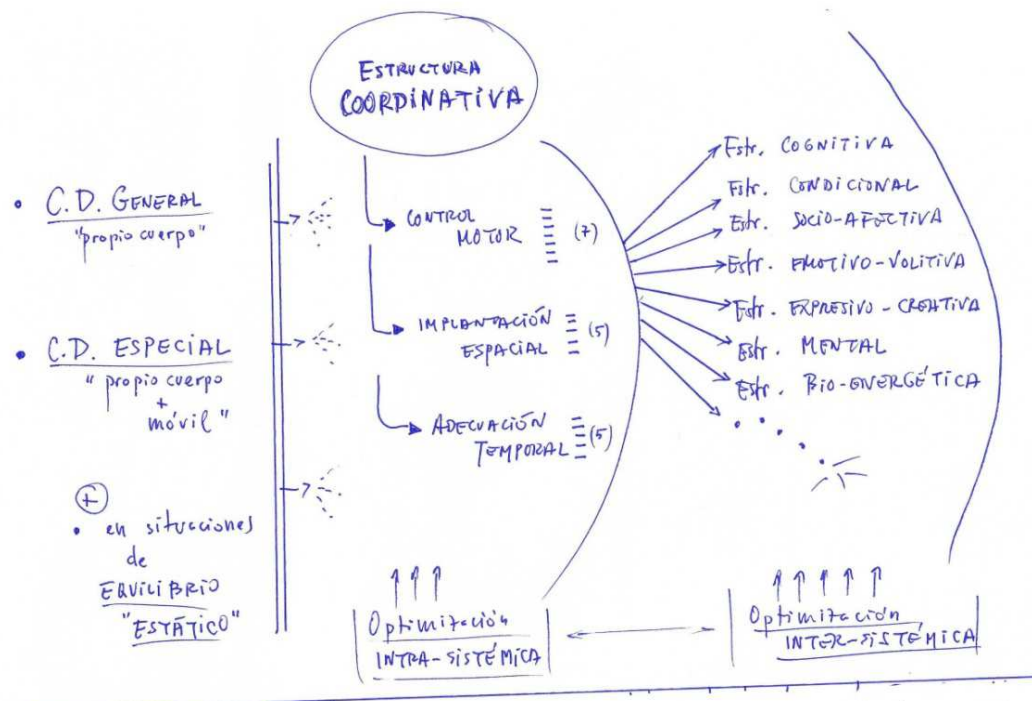 ESTRUCTURA
COORDINATIVA
• C.D. GENERAL
"propio cuerpo"
• C.D. ESPECIAL
"propio cuerpo
+
móvil"
+
• en situaciones
de
EQUILIBRIO
"ESTÁTICO"
CONTROL
MOTOR (7)
IMPLANTACIÓN
ESPACIAL (5)
ADECUACIÓN
TEMPORAL (5)
Estr. COGNITIVA
Estr. CONDICIONAL
Estr. SOCIO-AFECTIVA
Estr. EMOTIVO-VOLITIVA
Estr. EXPRESIVO-CREATIVA
Estr. MENTAL
Estr. BIO-ENERGÉTICA
Optimización
INTRA-SISTÉMICA
Optimización
INTER-SISTÉMICA